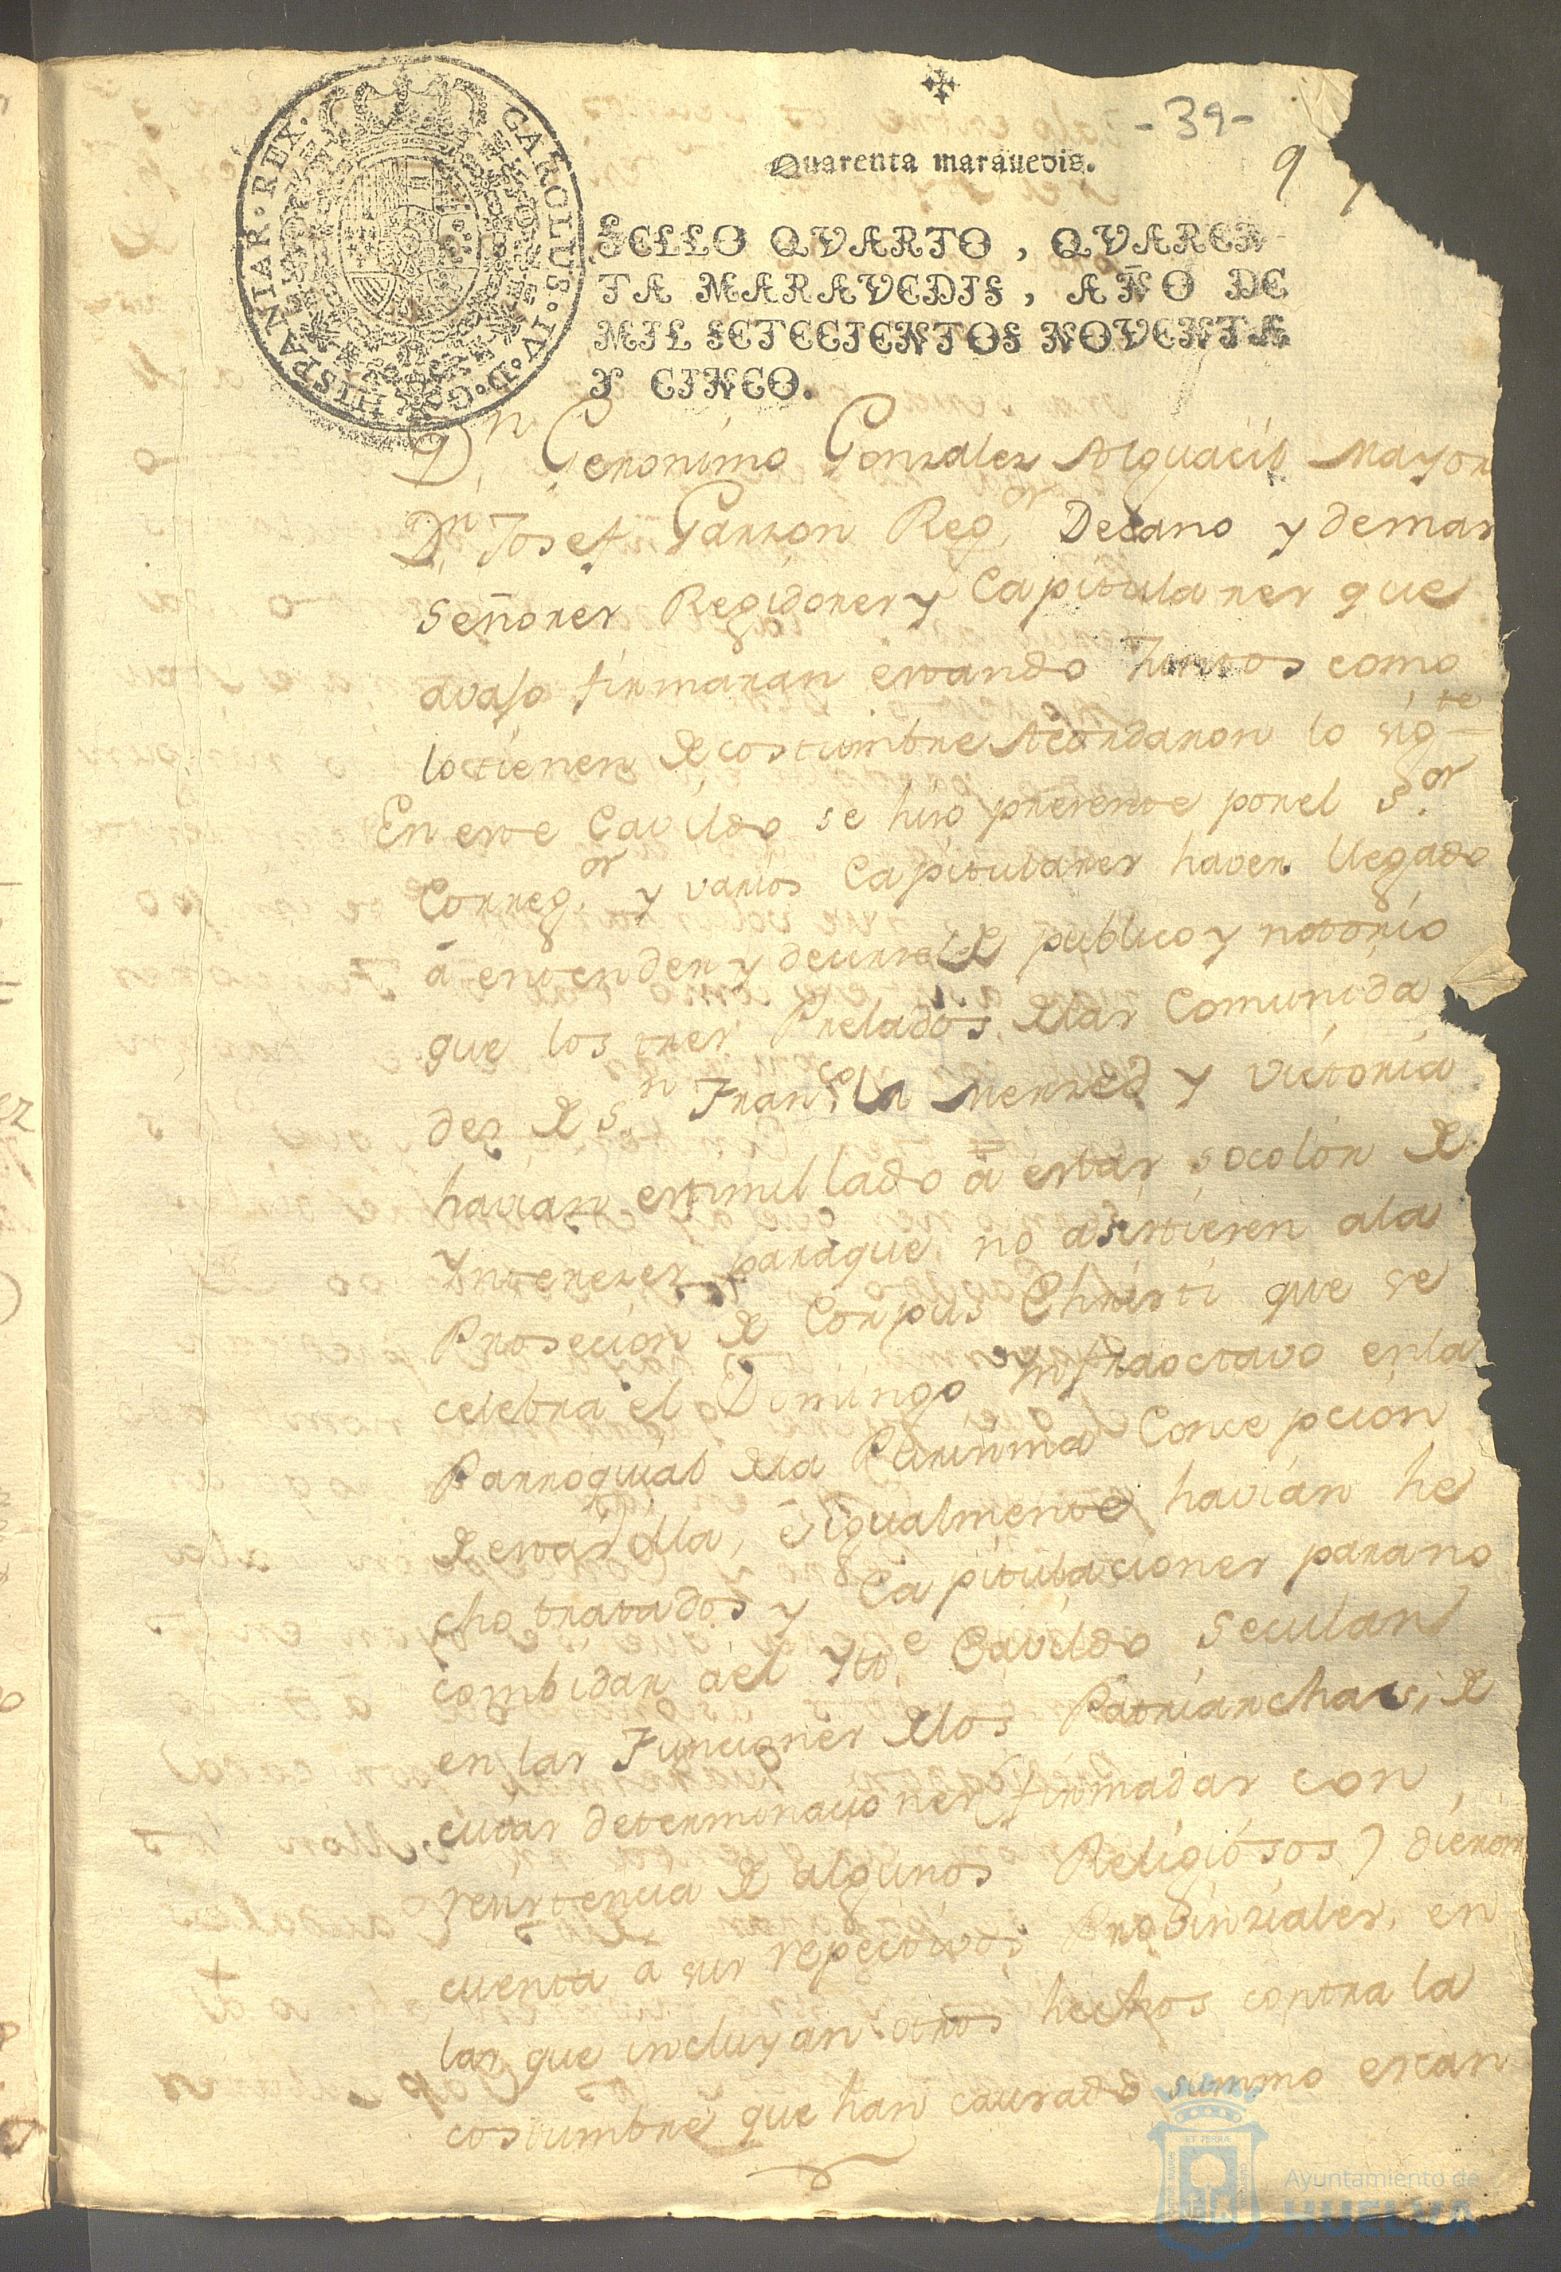 -39-
9
Quarenta marauedis.
CAROLUS·IV·D·G·HISPANIAR·REX·
SELLO QVARTO, QVAREN-
TA MARAVEDIS, AÑO DE
MIL SETECIENTOS NOVENTA
Y CINCO.
Dn. Geronimo Gonzalez Alguacil Mayor
Dn. Josef Garzon Regor. Decano y demas
Señores Regidores y Capitulares que
avajo firmaran estando Juntos como
lo tienen de costumbre Acordaron lo sigte
En este Cavildo se hizo presente por el Sor.
Corregor. y varios Capitulares haver llegado
á entender y decirse de publico y notorio
que los tres Prelados de las Comunida
des de Sn. Franco. la Merzed y Victoria
havian estimullado á estas socolór de
Yntereses para que no asistiesen a la
Prosecion de Corpus Christi que se
celebra el Domingo Ynfraoctavo en la
Parroquial de la Purisima Concepcion
de esta Vlla, é igualmente havian he
cho tratados y Capitulaciones para no
combidar a el Ytte. Cavildo Secular
en las Funciones de los Patriarchas, de
cuias determinaciones (firmadas con
resistencia de algunos Religiosos) dieron
cuenta a sus respectivos Probinziales, en
las que incluyan otros hechos contra la
costumbre que han causado summo escan
Ayuntamiento de
HUELVA